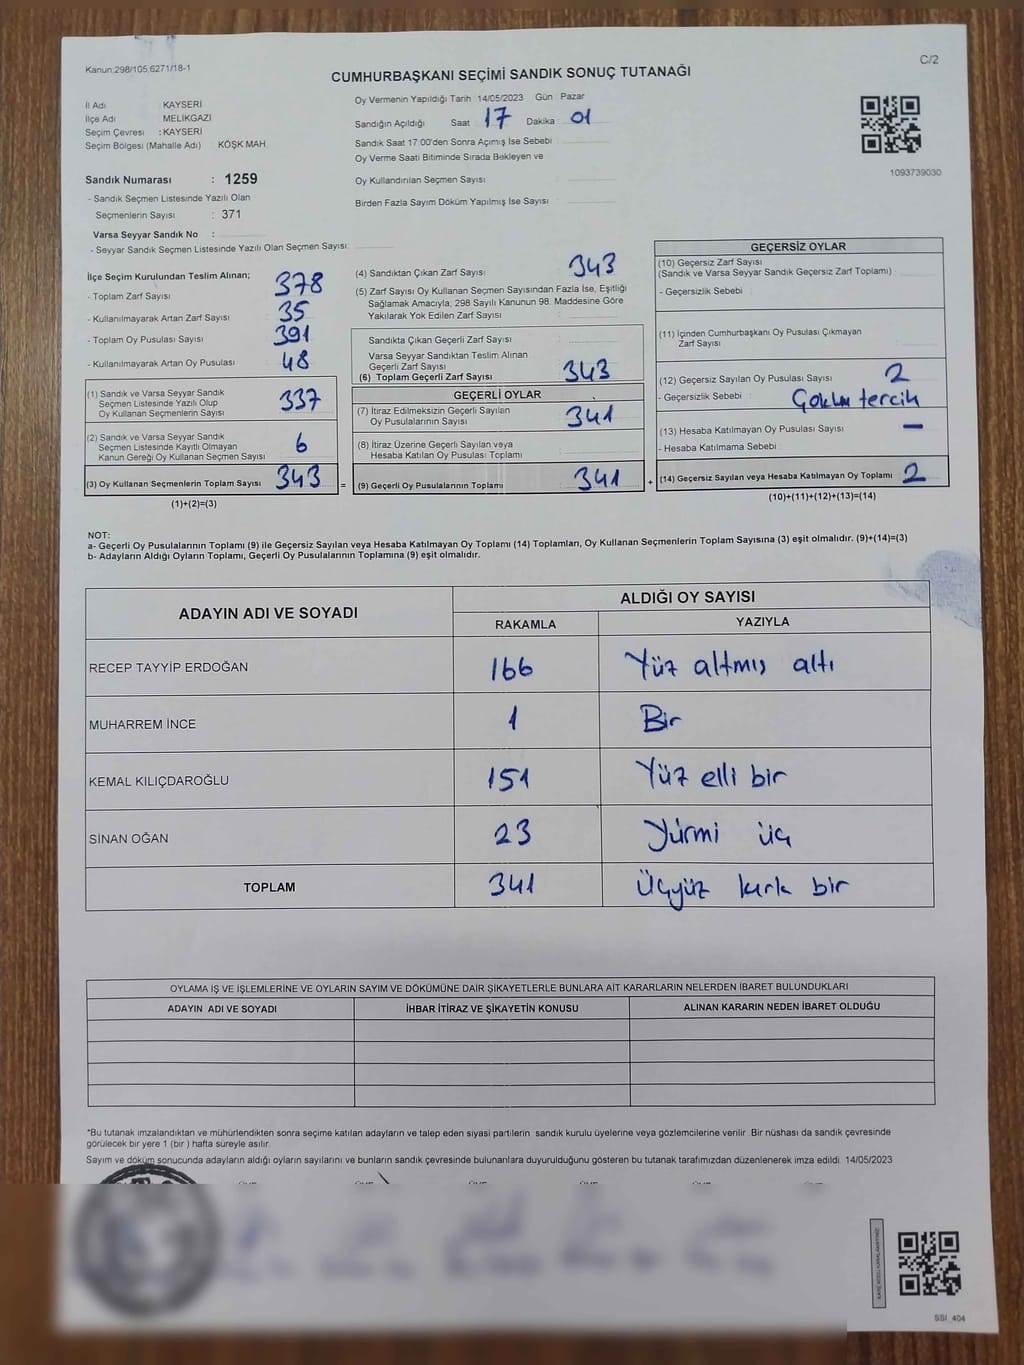 Kanun:298/105,6271/18-1
C/2
CUMHURBAŞKANI SEÇİMİ SANDIK SONUÇ TUTANAĞI
İl Adı KAYSERİ
İlçe Adı MELİKGAZİ
Seçim Çevresi : KAYSERİ
Seçim Bölgesi (Mahalle Adı) KÖŞK MAH.
Sandık Numarası : 1259
- Sandık Seçmen Listesinde Yazılı Olan
Seçmenlerin Sayısı : 371
Varsa Seyyar Sandık No :
- Seyyar Sandık Seçmen Listesinde Yazılı Olan Seçmen Sayısı:
Oy Vermenin Yapıldığı Tarih 14/05/2023 Gün Pazar
Sandığın Açıldığı Saat 17 Dakika 01
Sandık Saat 17:00'den Sonra Açımış İse Sebebi
Oy Verme Saati Bitiminde Sırada Bekleyen ve
Oy Kullandırılan Seçmen Sayısı:
Birden Fazla Sayım Döküm Yapılmış İse Sayısı :
1093739030
İlçe Seçim Kurulundan Teslim Alınan;
- Toplam Zarf Sayısı 378
- Kullanılmayarak Artan Zarf Sayısı 35
- Toplam Oy Pusulası Sayısı 391
- Kullanılmayarak Artan Oy Pusulası 48
(1) Sandık ve Varsa Seyyar Sandık
Seçmen Listesinde Yazılı Olup
Oy Kullanan Seçmenlerin Sayısı 337
(2) Sandık ve Varsa Seyyar Sandık
Seçmen Listesinde Kayıtlı Olmayan
Kanun Gereği Oy Kullanan Seçmen Sayısı 6
(3) Oy Kullanan Seçmenlerin Toplam Sayısı 343 =
(1)+(2)=(3)
(4) Sandıktan Çıkan Zarf Sayısı 343
(5) Zarf Sayısı Oy Kullanan Seçmen Sayısından Fazla İse, Eşitliği
Sağlamak Amacıyla, 298 Sayılı Kanunun 98. Maddesine Göre
Yakılarak Yok Edilen Zarf Sayısı
Sandıkta Çıkan Geçerli Zarf Sayısı
Varsa Seyyar Sandıktan Teslim Alınan
Geçerli Zarf Sayısı
(6) Toplam Geçerli Zarf Sayısı 343
GEÇERLİ OYLAR
(7) İtiraz Edilmeksizin Geçerli Sayılan
Oy Pusulasının Sayısı 341
(8) İtiraz Üzerine Geçerli Sayılan veya
Hesaba Katılan Oy Pusulası Toplamı
(9) Geçerli Oy Pusulalarının Toplamı 341 +
GEÇERSİZ OYLAR
(10) Geçersiz Zarf Sayısı
(Sandık ve Varsa Seyyar Sandık Geçersiz Zarf Toplamı)
- Geçersizlik Sebebi
(11) İçinden Cumhurbaşkanı Oy Pusulası Çıkmayan
Zarf Sayısı
(12) Geçersiz Sayılan Oy Pusulası Sayısı 2
- Geçersizlik Sebebi : Çoklu tercih
(13) Hesaba Katılmayan Oy Pusulası Sayısı –
- Hesaba Katılmama Sebebi
(14) Geçersiz Sayılan veya Hesaba Katılmayan Oy Toplamı 2
(10)+(11)+(12)+(13)=(14)
NOT:
a- Geçerli Oy Pusulalarının Toplamı (9) ile Geçersiz Sayılan veya Hesaba Katılmayan Oy Toplamı (14) Toplamları, Oy Kullanan Seçmenlerin Toplam Sayısına (3) eşit olmalıdır. (9)+(14)=(3)
b- Adayların Aldığı Oyların Toplamı, Geçerli Oy Pusulalarının Toplamına (9) eşit olmalıdır.
ADAYIN ADI VE SOYADI ALDIĞI OY SAYISI
RAKAMLA YAZIYLA
RECEP TAYYİP ERDOĞAN 166 Yüz altmış altı
MUHARREM İNCE 1 Bir
KEMAL KILIÇDAROĞLU 151 Yüz elli bir
SİNAN OĞAN 23 Yirmi üç
TOPLAM 341 Üçyüz kırk bir
OYLAMA İŞ VE İŞLEMLERİNE VE OYLARIN SAYIM VE DÖKÜMÜNE DAİR ŞİKAYETLERLE BUNLARA AİT KARARLARIN NELERDEN İBARET BULUNDUKLARI
ADAYIN ADI VE SOYADI İHBAR İTİRAZ VE ŞİKAYETİN KONUSU ALINAN KARARIN NEDEN İBARET OLDUĞU
*Bu tutanak imzalandıktan ve mühürlendikten sonra seçime katılan adayların ve talep eden siyasi partilerin sandık kurulu üyelerine veya gözlemcilerine verilir. Bir nüshası da sandık çevresinde
görülecek bir yere 1 (bir) hafta süreyle asılır.
Sayım ve döküm sonucunda adayların aldığı oyların sayılarını ve bunların sandık çevresinde bulunanlara duyurulduğunu gösteren bu tutanak tarafımızdan düzenlenerek imza edildi. 14/05/2023
SSI_404